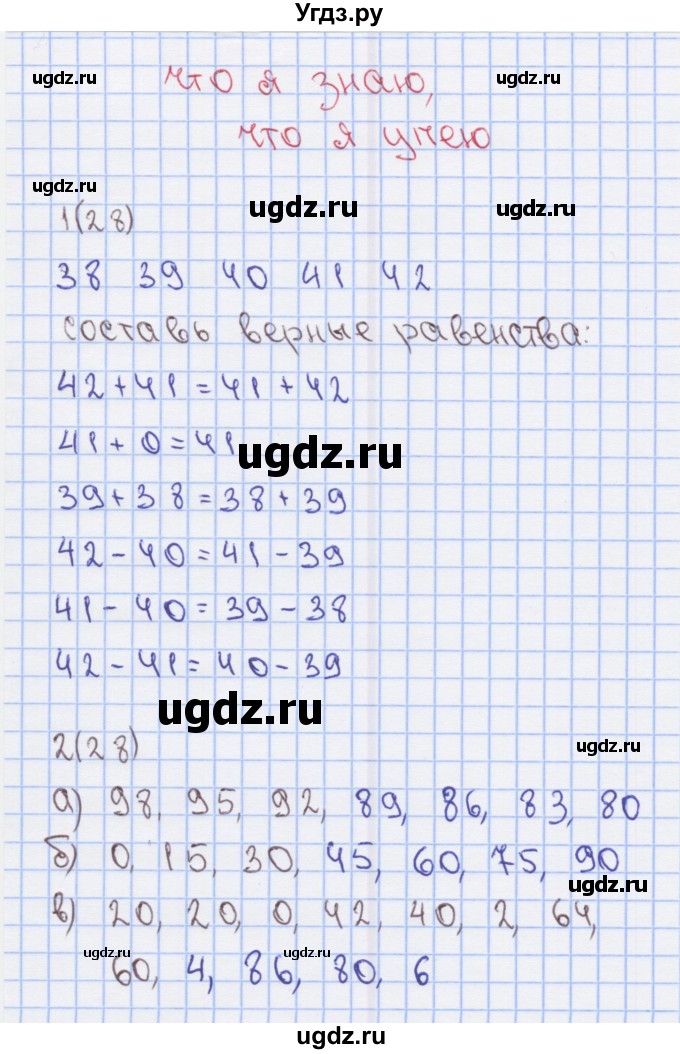 Угдз.ру
ugdz.ru ugdz.ru ugdz.ru
что я знаю,
что я умею
ugdz.ru ugdz.ru ugdz.ru
1(28)
38 39 40 41 42
составь верные равенства:
42 + 41 = 41 + 42
41 + 0 = 41
ugdz.ru
39 + 38 = 38 + 39
42 - 40 = 41 - 39
41 - 40 = 39 - 38
42 - 41 = 40 - 39
ugdz.ru
2(28)
ugdz.ru
а) 98, 95, 92, 89, 86, 83, 80
б) 0, 15, 30, 45, 60, 75, 90
ugdz.ru
в) 20, 20, 0, 42, 40, 2, 64,
ugdz.ru ugdz.ru
60, 4, 86, 80, 6
ugdz.ru
ugdz.ru